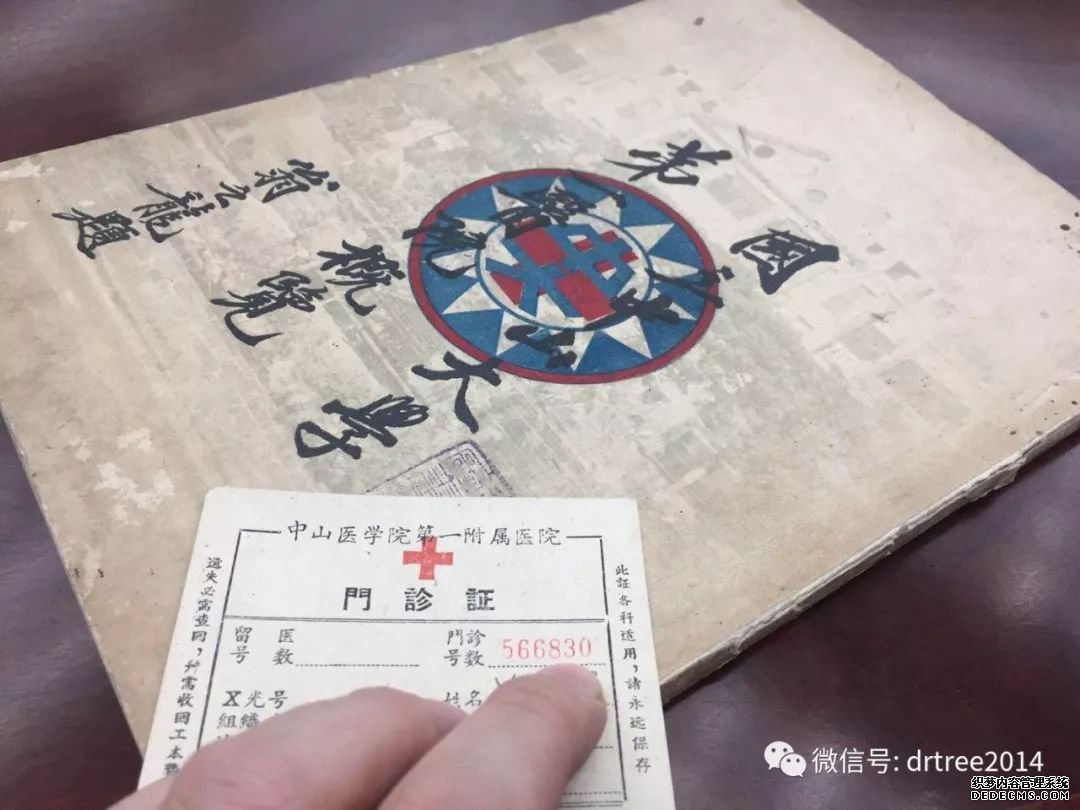 國立中山大學
第一醫院
概覽
翁之龍題
中山医学院第一附属医院
門診証
留医号数
門診号数 566830
X光号
姓名
組織
遺失必需查回，并需收回工本
此証各科适用，請永远保存
微信号: drtree2014
织梦内容管理系统
DEDECMS.COM